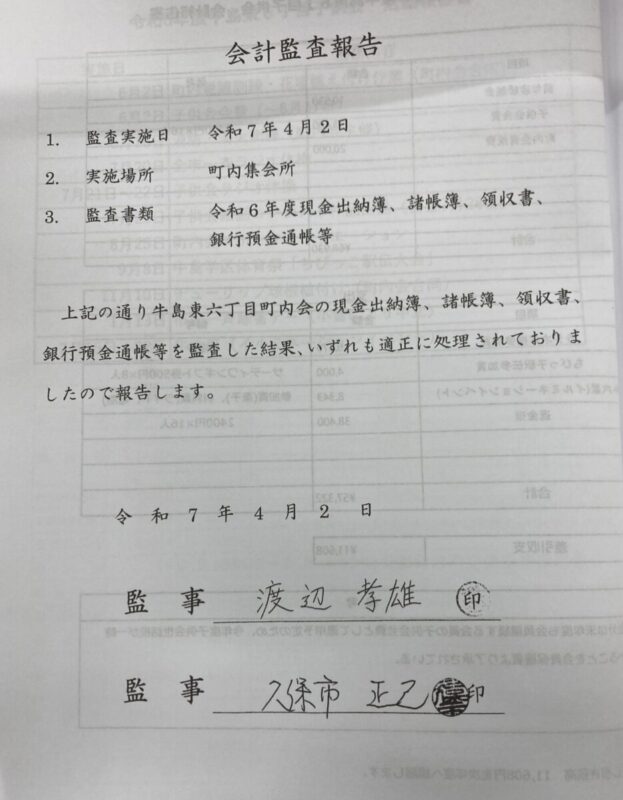 会計監査報告
1. 監査実施日 令和7年4月2日
2. 実施場所 町内集会所
3. 監査書類 令和6年度現金出納簿、諸帳簿、領収書、
銀行預金通帳等
上記の通り牛島東六丁目町内会の現金出納簿、諸帳簿、領収書、
銀行預金通帳等を監査した結果、いずれも適正に処理されておりま
したので報告します。
令和7年4月2日
監事 渡辺 孝雄 印
監事 久保市 正己 印